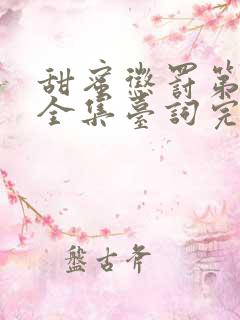 甜蜜懲罰第
全集臺詞完
盤古斧